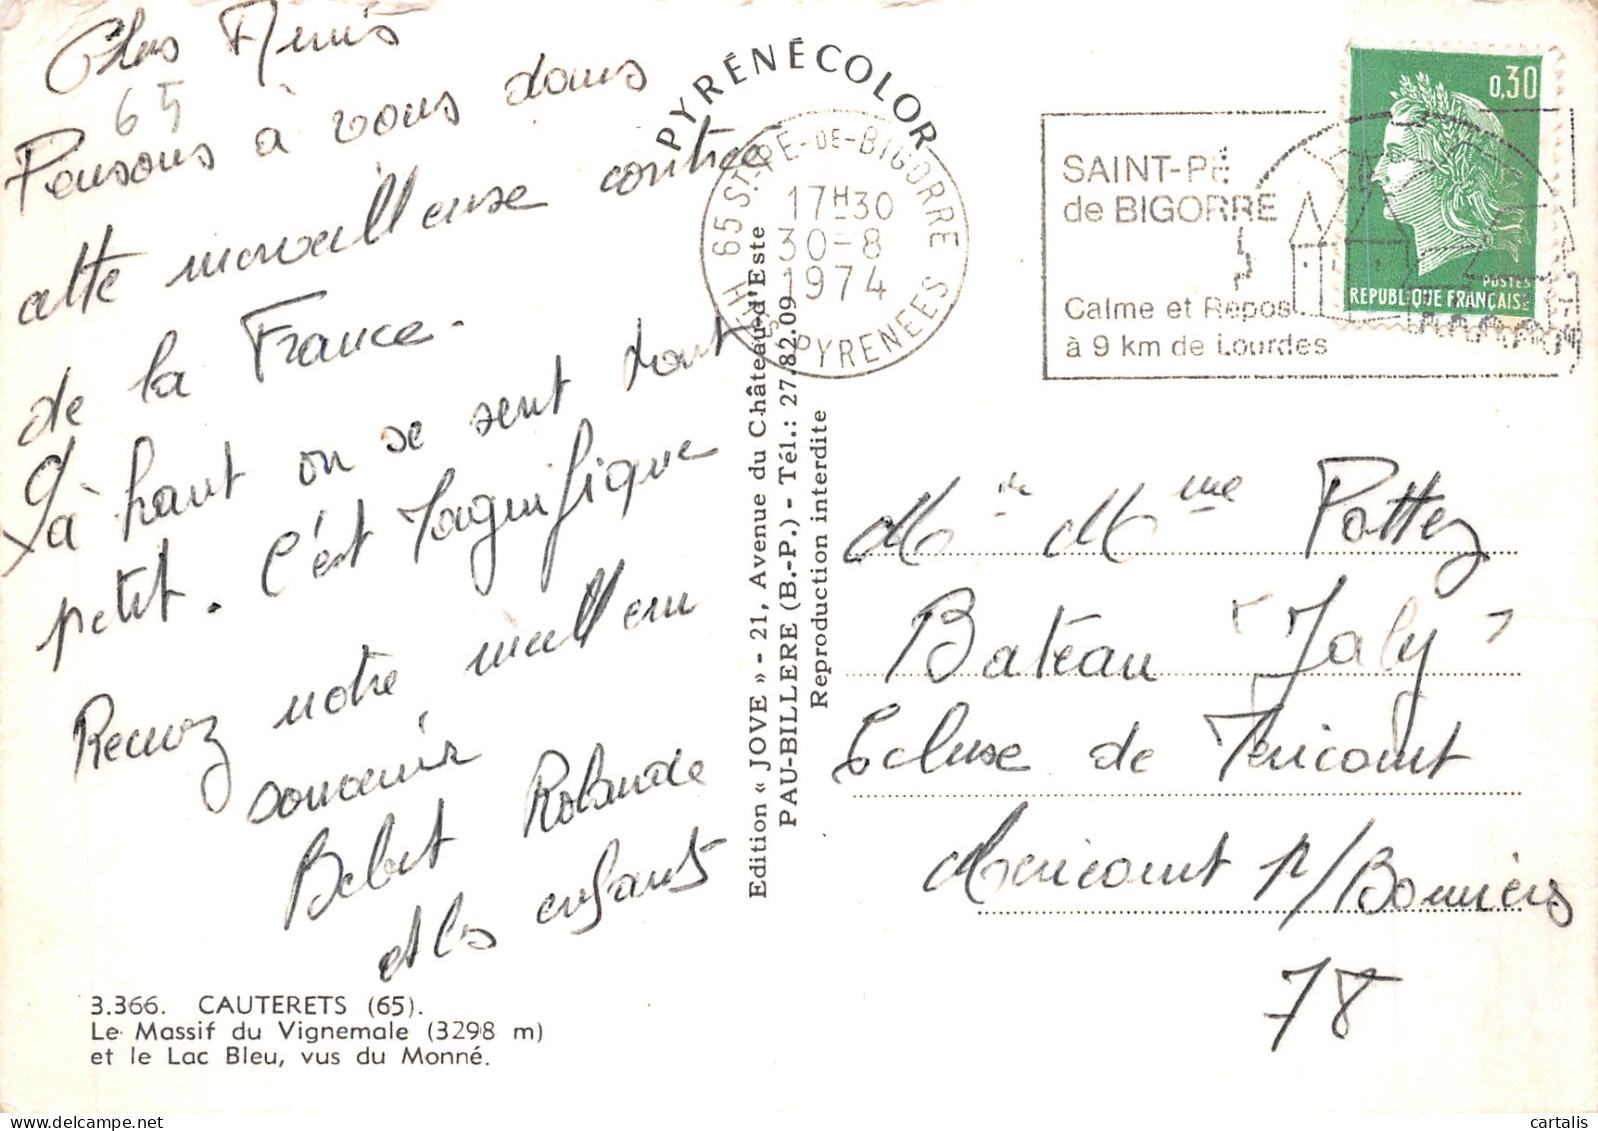 Chers Amis
65
Pensons à vous dans
cette merveilleuse contrée
de la France.
Là haut on se sent tout
petit. C'est Magnifique
Recevez notre meilleur
souvenir
Bebert Rolande
et les enfants
3.366. CAUTERETS (65).
Le Massif du Vignemale (3298 m)
et le Lac Bleu, vus du Monné.
PYRÉNÉCOLOR
Edition « JOVE » - 21, Avenue du Château-d'Este
PAU-BILLERE (B.-P.) - Tél.: 27.82.09
Reproduction interdite
65 ST-PE-DE-BIGORRE
17H30
30-8
1974
HTES PYRENEES
SAINT-PÉ
de BIGORRE
Calme et Repos
à 9 km de Lourdes
0,30
POSTES
REPUBLIQUE FRANÇAISE
M. Mme Pottez
Bateau "Jaly"
Ecluse de Mericourt
Mericourt p/Bonnières
78
cartalis